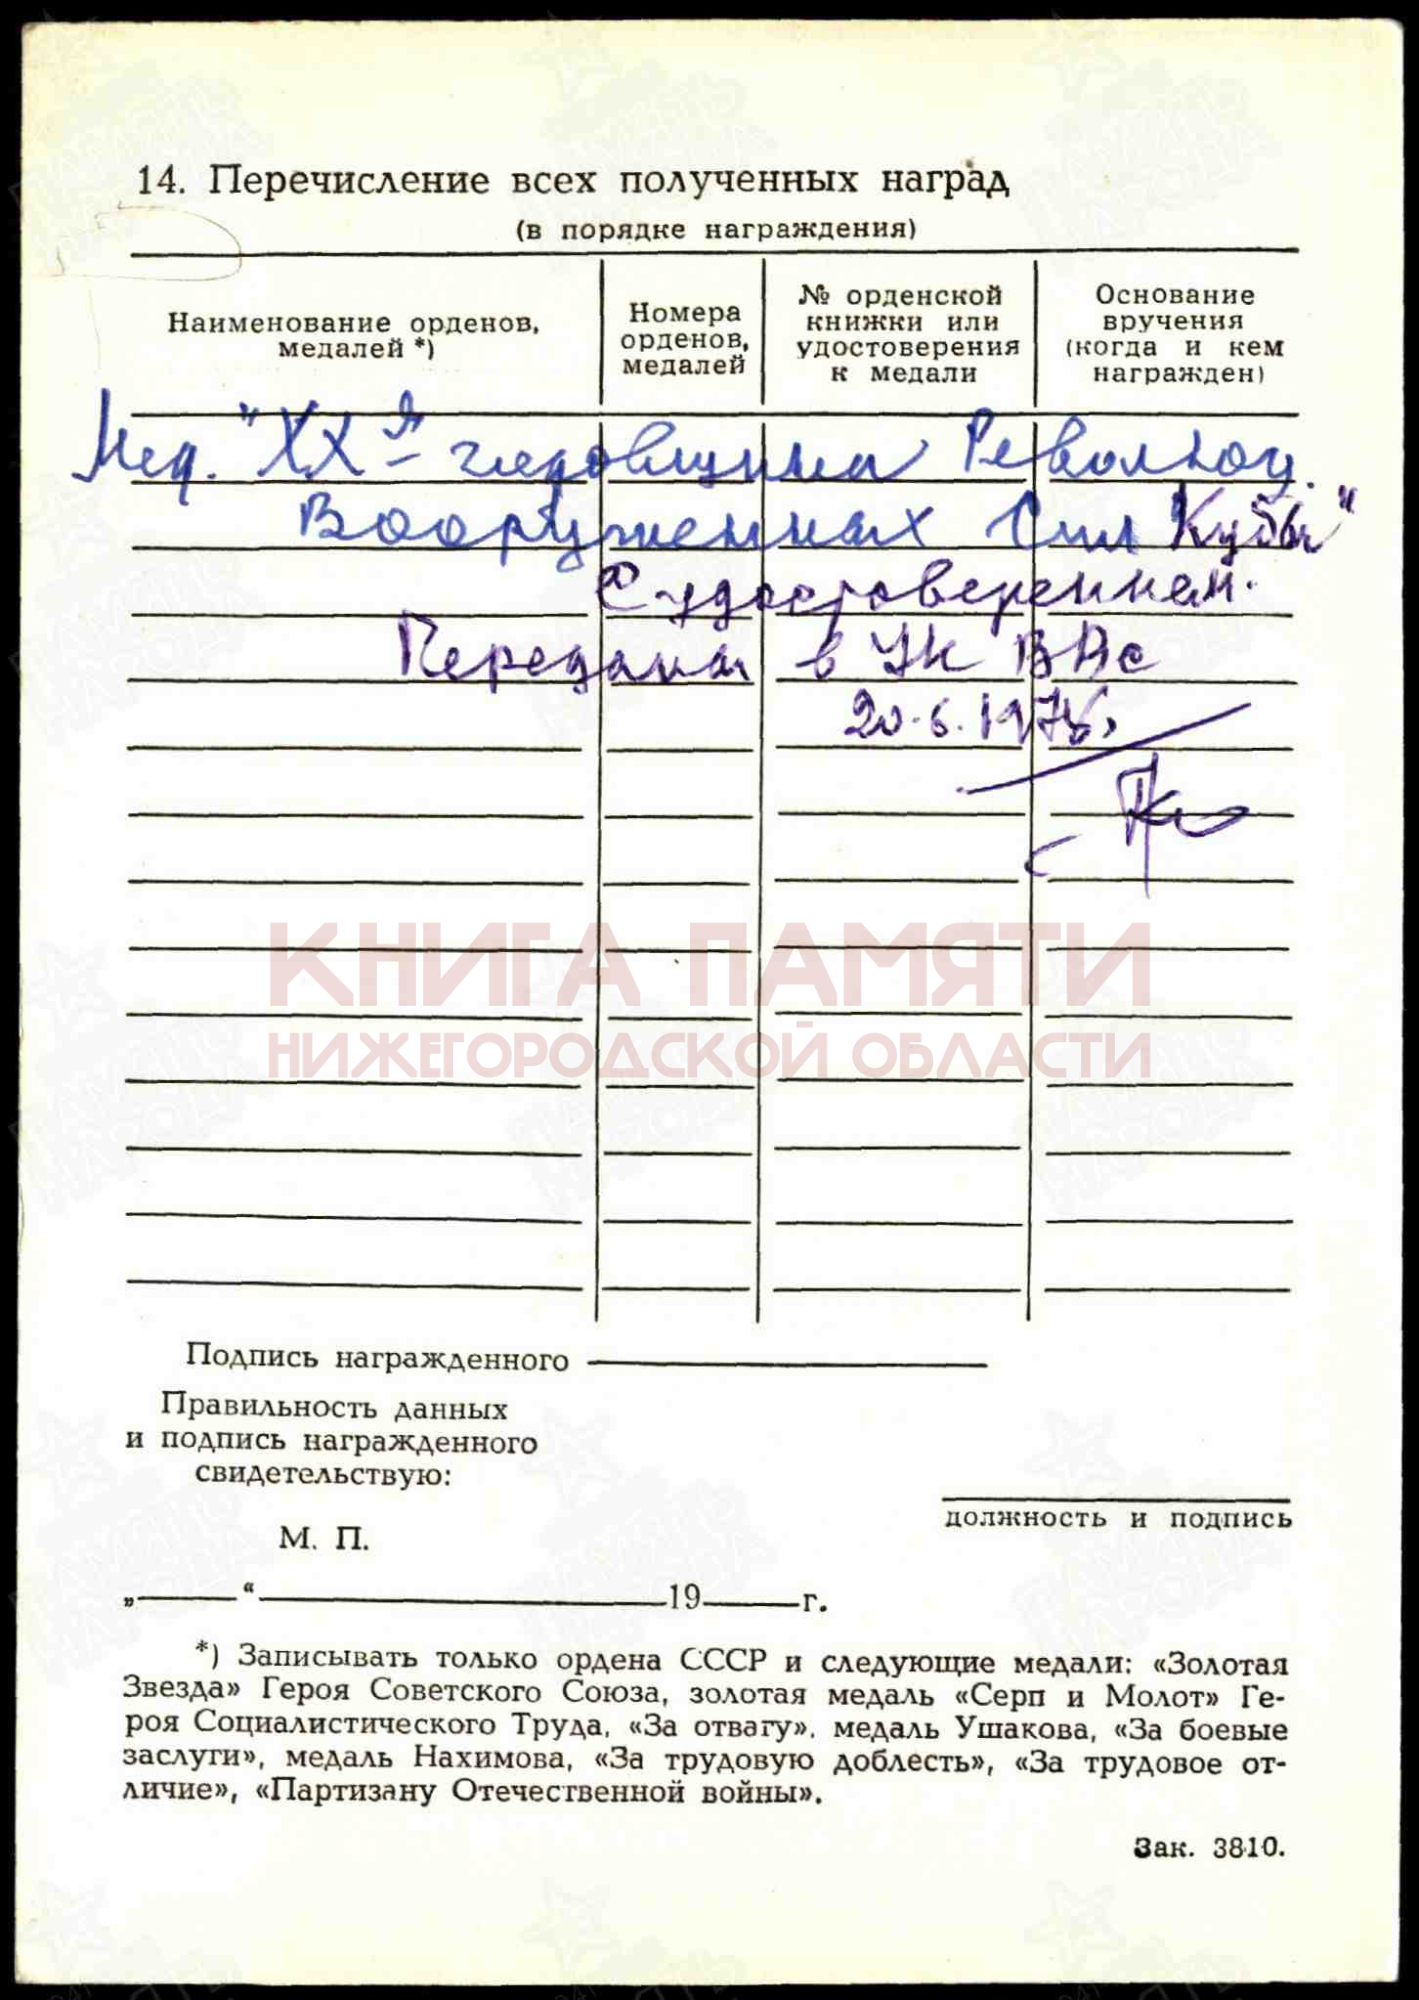 14. Перечисление всех полученных наград
(в порядке награждения)
Наименование орденов,
медалей *)
Номера
орденов,
медалей
№ орденской
книжки или
удостоверения
к медали
Основание
вручения
(когда и кем
награжден)
Мед. "ХХ-я годовщина Революц.
Вооруженных Сил Кубы"
С удостоверением.
Передана в УК ВВС
20.6.197
КНИГА ПАМЯТИ
НИЖЕГОРОДСКОЙ ОБЛАСТИ
Подпись награжденного
Правильность данных
и подпись награжденного
свидетельствую:
должность и подпись
М. П.
„ “ 19 г.
*) Записывать только ордена СССР и следующие медали: «Золотая
Звезда» Героя Советского Союза, золотая медаль «Серп и Молот» Ге-
роя Социалистического Труда, «За отвагу». медаль Ушакова, «За боевые
заслуги», медаль Нахимова, «За трудовую доблесть», «За трудовое от-
личие», «Партизану Отечественной войны».
Зак. 3810.